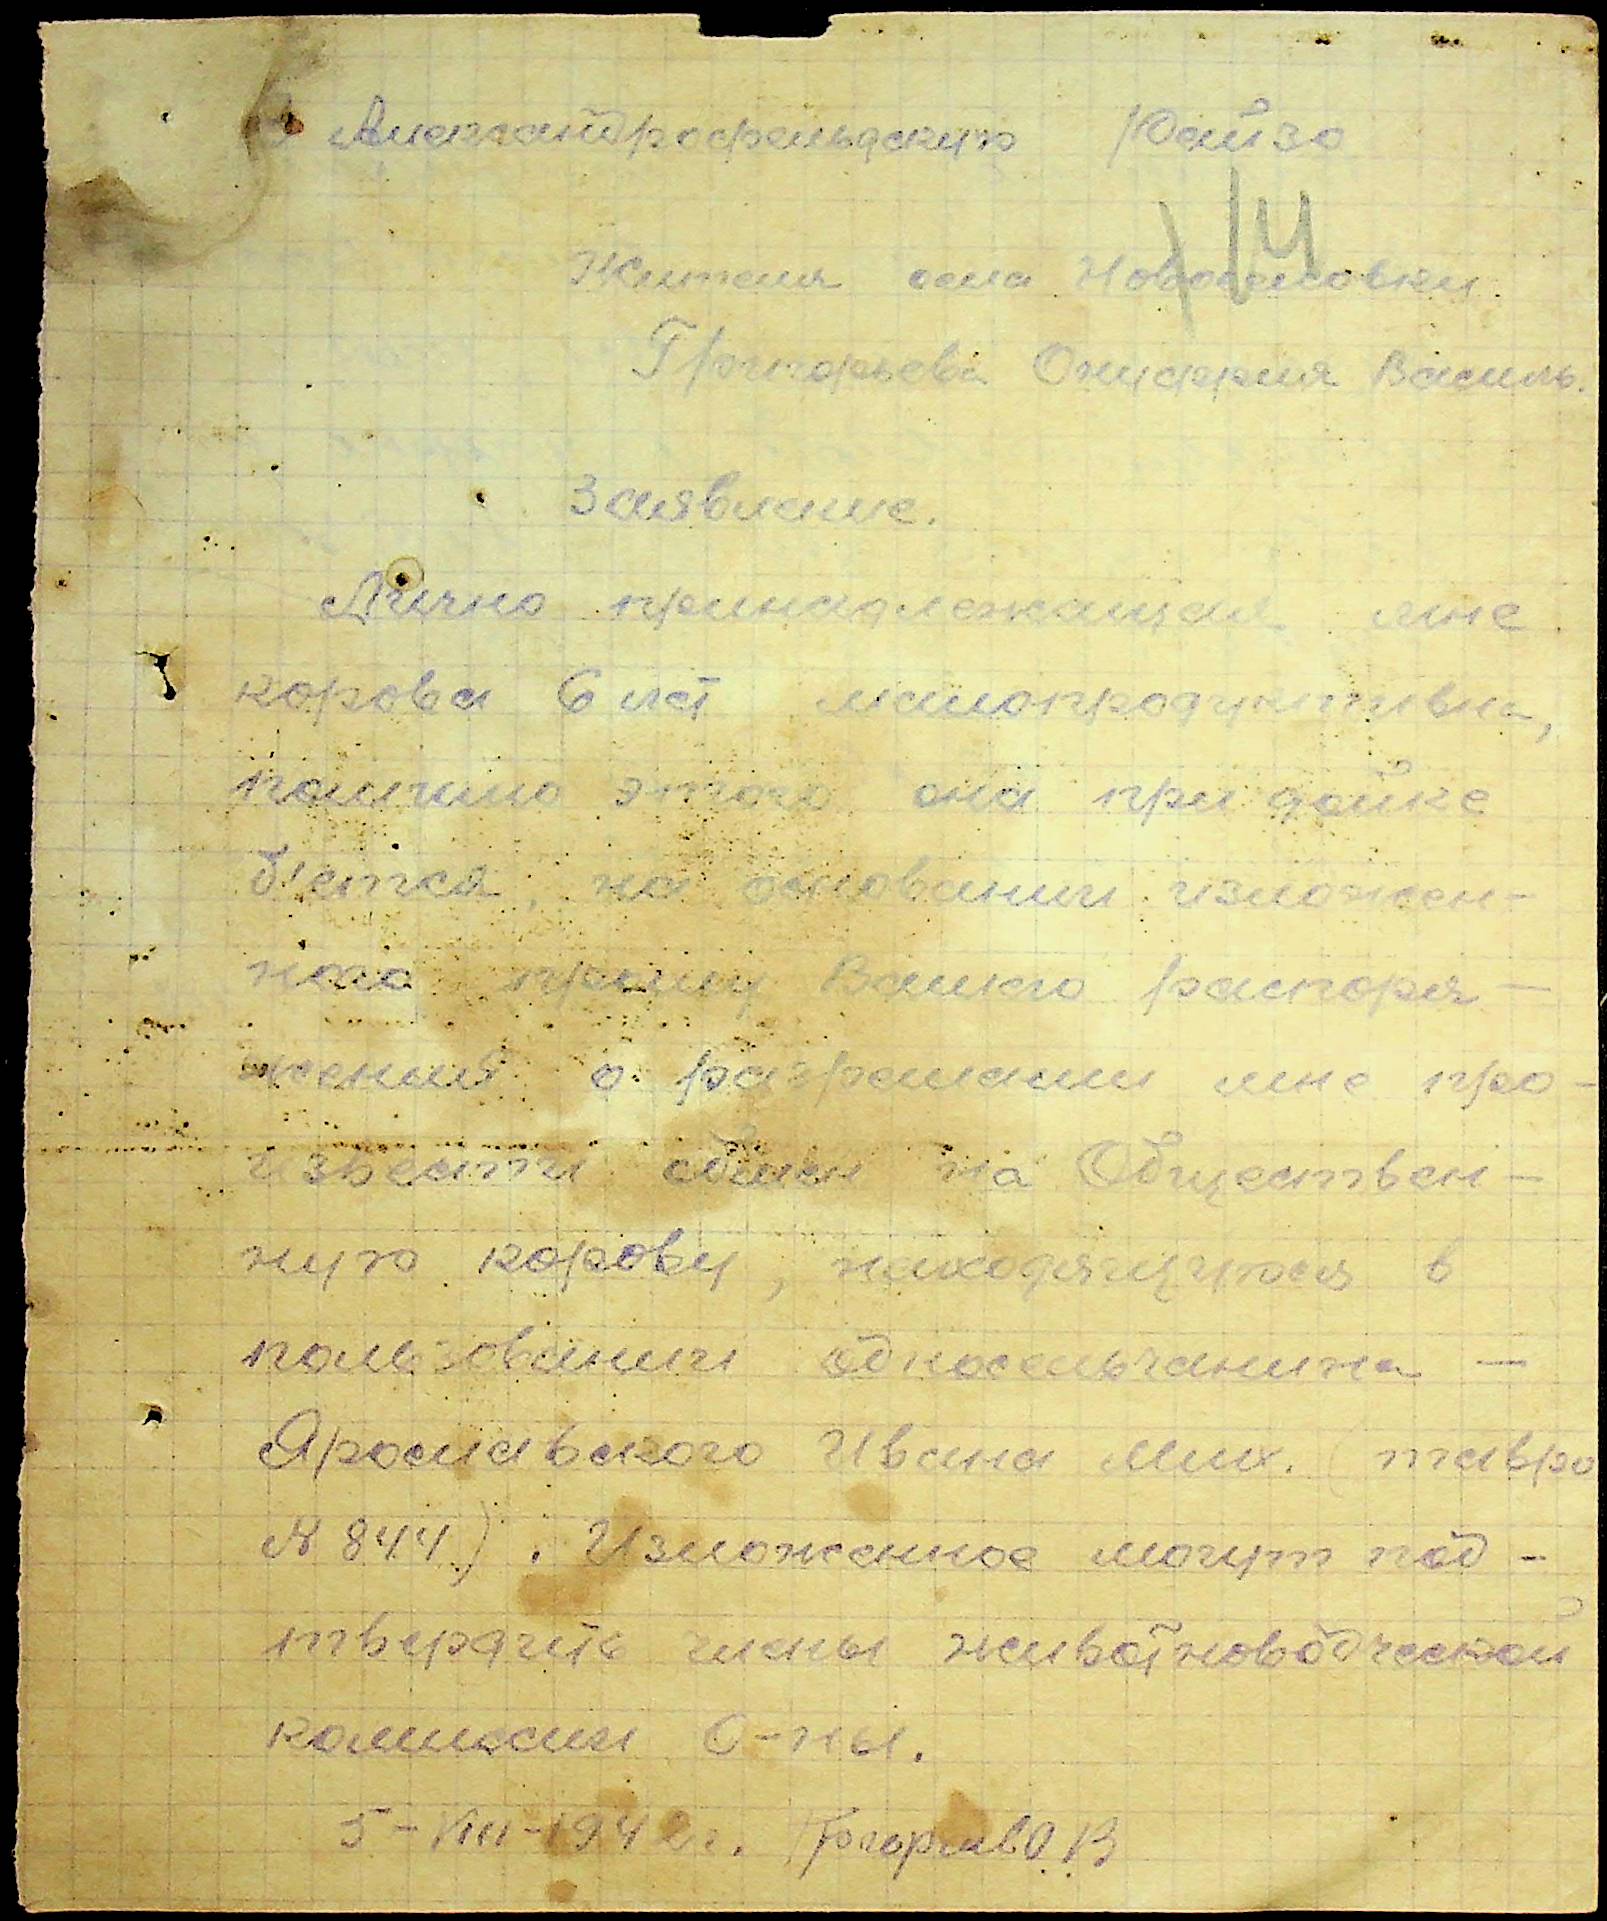 В Александрофельдскую Райзо
14
Жителя села Новоселовки
Григорьева Онуфрия Василь.
Заявление.
Лично принадлежащая мне
корова 6 лет малопродуктивна,
помимо этого она при дойке
б'ется, на основании изложен-
ного прошу Вашего распоря-
жения о разрешении мне про-
извести обмен на Обществен-
ную корову, находящуюся в
пользовании односельчанина —
Ярославского Ивана Мих. (тавро
№ 844). Изложенное могут под-
твердить члены животноводческой
комиссии О-ны.
5-VIII-1942 г.